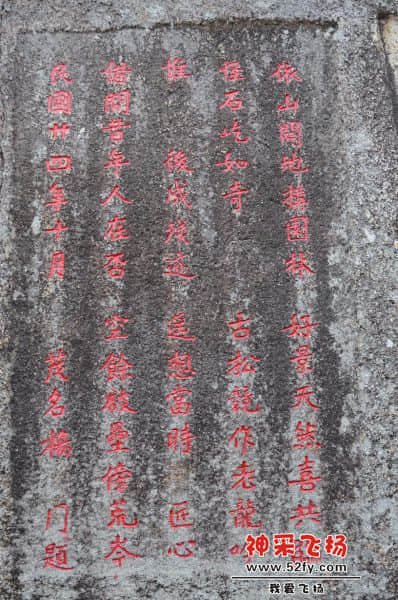 依山開地搆園林 好景天然喜共
怪石屹如奇 古松詑作老龍吟
惟 後成殘迹 遥想當時 匠心
借問昔年人在否 空餘破壘傍荒岑
民國廿四年十月 茂名楊 门題
神采飞扬
www.52fy.com
我爱飞扬